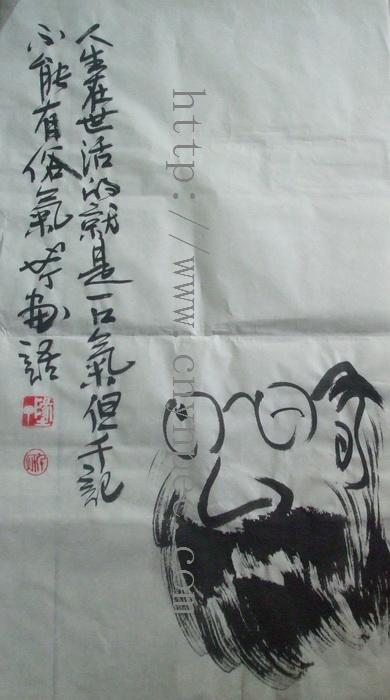 人生在世活的就是一口氣但千記
不能有俗氣 畫語